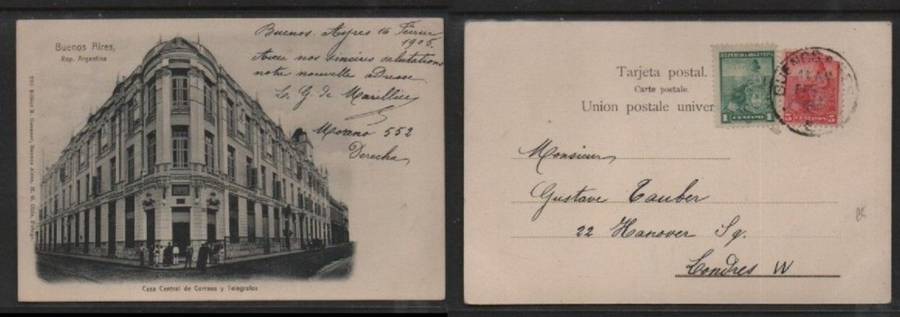 Buenos Aires,
Rep. Argentina
Buenos Ayres 16 Févrer
1905
Avec nos sincères salutations
notre nouvelle adresse
G de
Moreno 552
Derecha
Casa Central de Correos y Telégrafos
Tarjeta postal.
Carte postale.
Union postale univer
REPUBLICA ARGENTINA
1 CENTAVO 1
5 CENTAVOS 5
BUENOS
Monsieur
Gustave Tauber
22 Hanover Sq.
Londres W